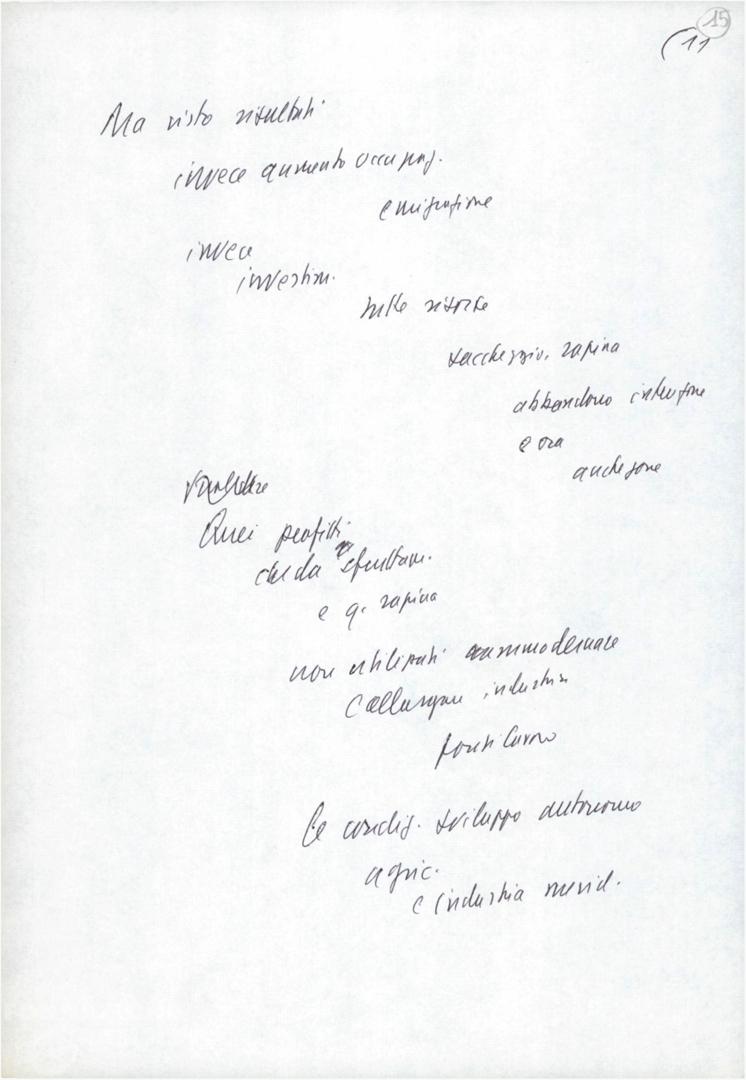 15
(11
Ma visto risultati
invece aumento occupaz.
emigrazione
invece
investim.
sulle risorse
saccheggio, rapina
abbandono
e ora
anche zone
Quei profitti
che da sfruttam.
e q. rapina
non utilizzati ammodernare
allargare industria
posti lavoro
le condiz. sviluppo autonomo
agric.
e industria merid.